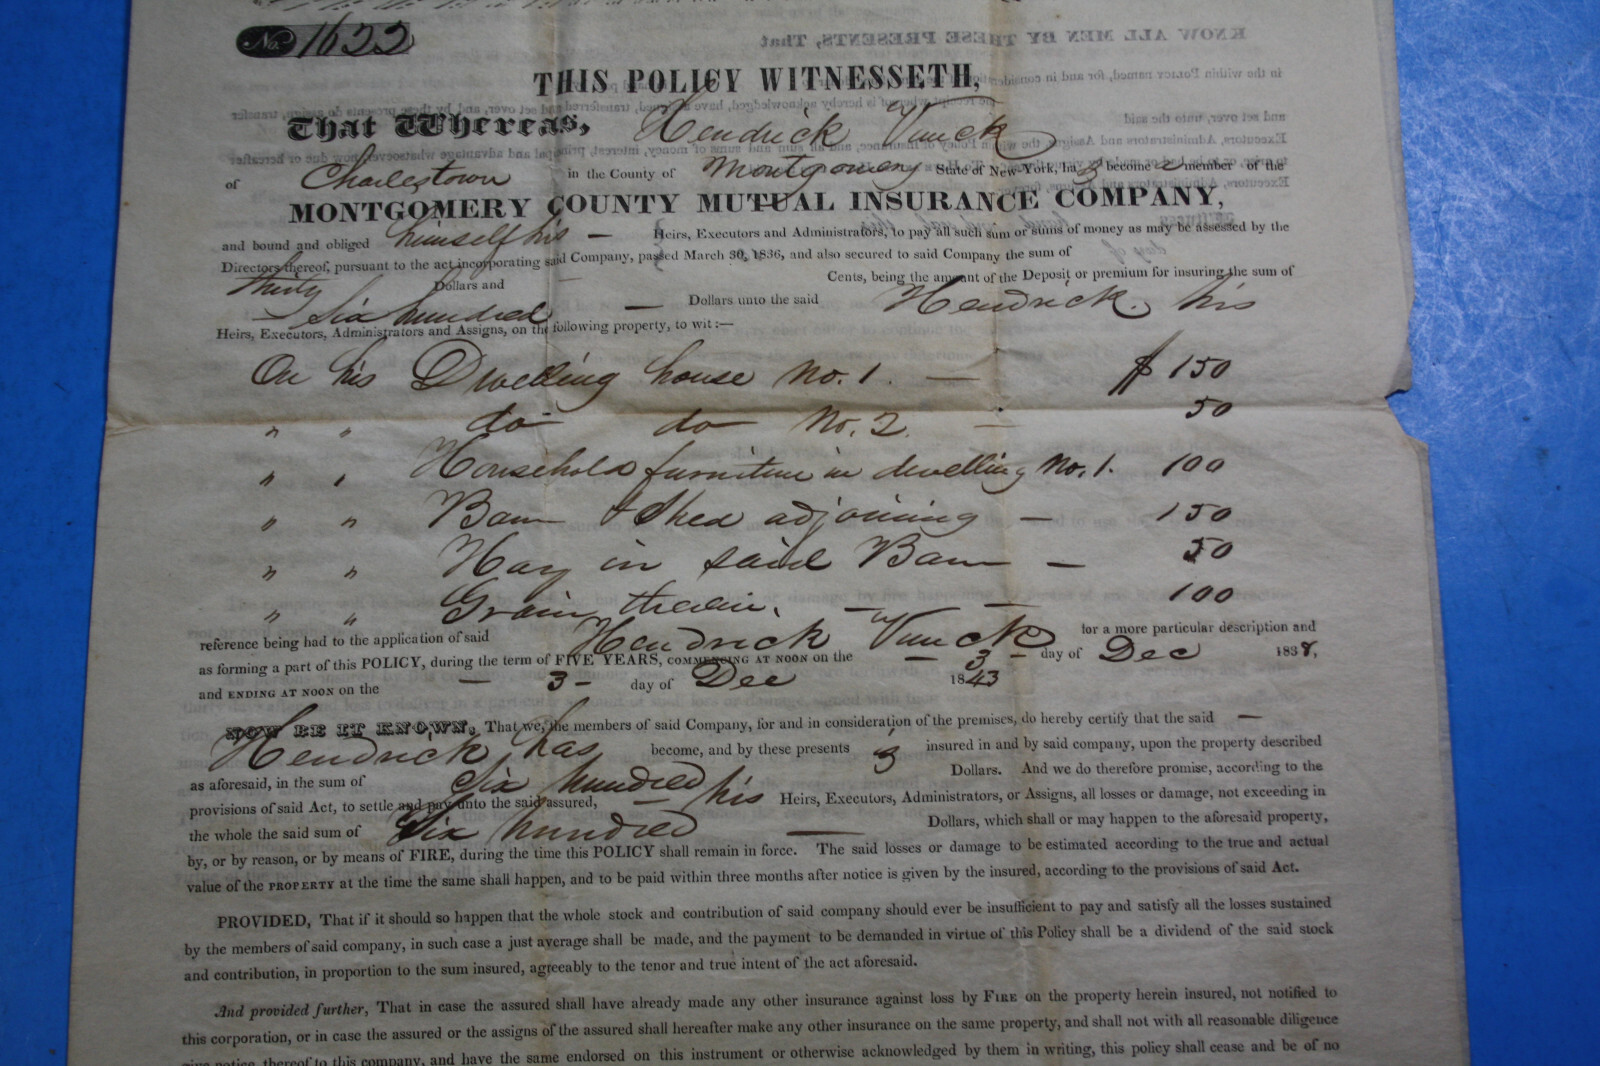 No. 1622
THIS POLICY WITNESSETH,
That Whereas, Hendrick Vunck
of Charlestown in the County of Montgomery State of New-York, has become a member of the
MONTGOMERY COUNTY MUTUAL INSURANCE COMPANY,
and bound and obliged himself his — Heirs, Executors and Administrators, to pay all such sum or sums of money as may be assessed by the
Directors thereof, pursuant to the act incorporating said Company, passed March 30, 1836, and also secured to said Company the sum of
thirty Dollars and — Cents, being the amount of the Deposit or premium for insuring the sum of
— Six hundred — Dollars unto the said Hendrick. his
Heirs, Executors, Administrators and Assigns, on the following property, to wit:—
On his Dwelling house No. 1. — $ 150
" " do do No. 2. — 50
" " Household furniture in dwelling No. 1. 100
" " Barn & Shed adjoining — 150
" " Hay in said Barn — 50
" " Grain therein. — — 100
reference being had to the application of said Hendrick Vunck for a more particular description and
as forming a part of this POLICY, during the term of FIVE YEARS, COMMENCING AT NOON on the — 3 — day of Dec 1838,
and ENDING AT NOON on the — 3 — day of Dec 1843
NOW BE IT KNOWN, That we, the members of said Company, for and in consideration of the premises, do hereby certify that the said —
Hendrick has become, and by these presents is insured in and by said company, upon the property described
as aforesaid, in the sum of Six hundred Dollars. And we do therefore promise, according to the
provisions of said Act, to settle and pay unto the said assured, — his Heirs, Executors, Administrators, or Assigns, all losses or damage, not exceeding in
the whole the said sum of Six hundred — Dollars, which shall or may happen to the aforesaid property,
by, or by reason, or by means of FIRE, during the time this POLICY shall remain in force. The said losses or damage to be estimated according to the true and actual
value of the PROPERTY at the time the same shall happen, and to be paid within three months after notice is given by the insured, according to the provisions of said Act.
PROVIDED, That if it should so happen that the whole stock and contribution of said company should ever be insufficient to pay and satisfy all the losses sustained
by the members of said company, in such case a just average shall be made, and the payment to be demanded in virtue of this Policy shall be a dividend of the said stock
and contribution, in proportion to the sum insured, agreeably to the tenor and true intent of the act aforesaid.
And provided further, That in case the assured shall have already made any other insurance against loss by FIRE on the property herein insured, not notified to
this corporation, or in case the assured or the assigns of the assured shall hereafter make any other insurance on the same property, and shall not with all reasonable diligence
give notice thereof to this company, and have the same endorsed on this instrument or otherwise acknowledged by them in writing, this policy shall cease and be of no